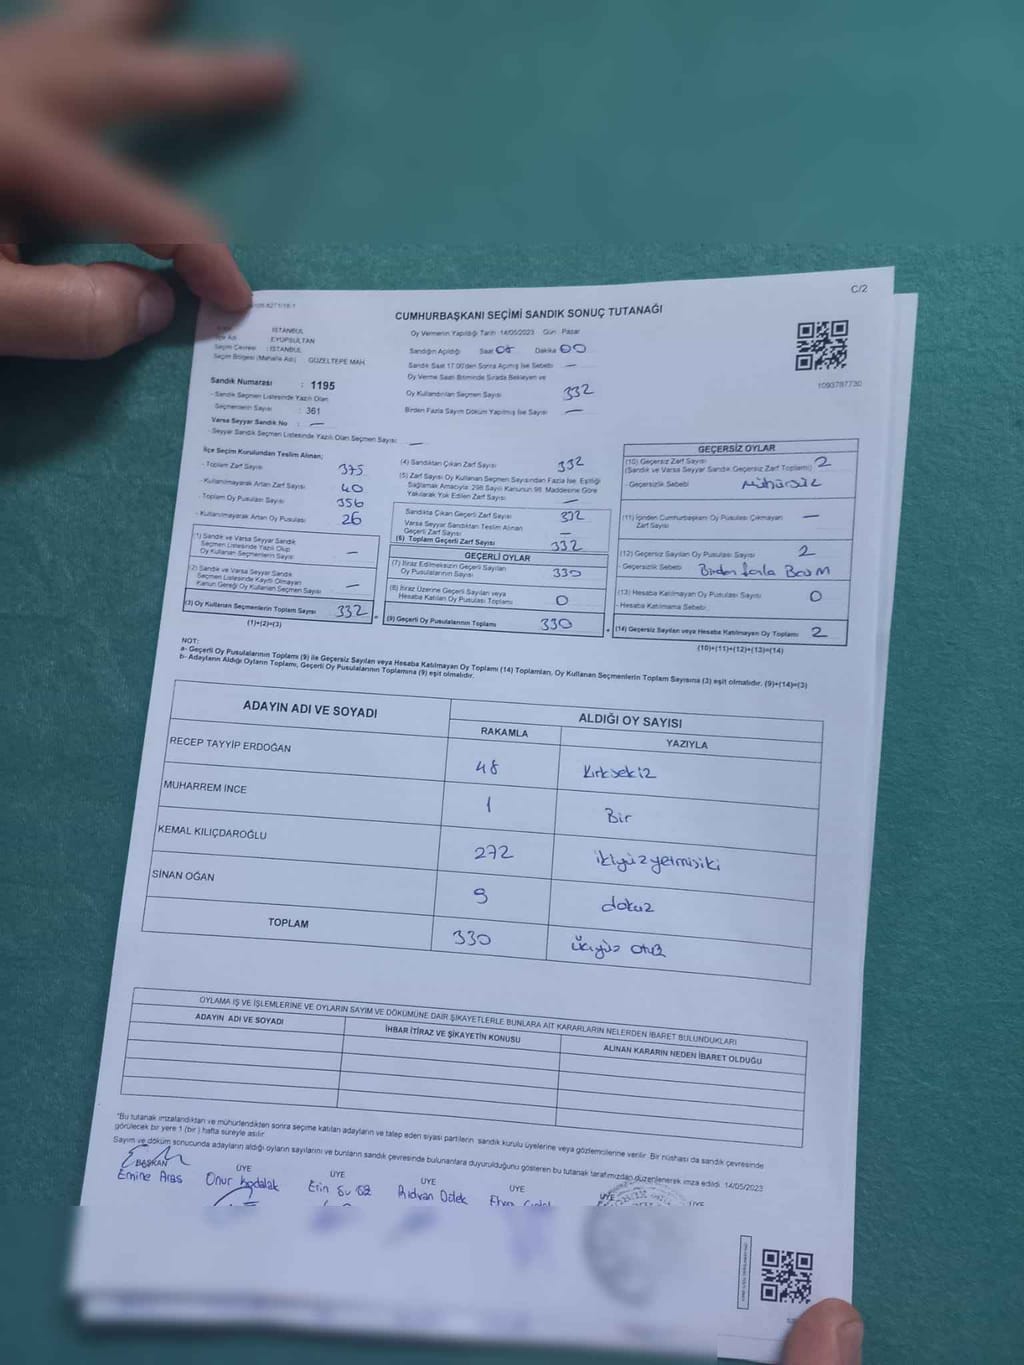 C/2
CUMHURBAŞKANI SEÇİMİ SANDIK SONUÇ TUTANAĞI
: İSTANBUL
: EYÜPSULTAN
Seçim Çevresi : İSTANBUL
Seçim Bölgesi (Mahalle Adı) : GÜZELTEPE MAH.
Sandık Numarası : 1195
- Sandık Seçmen Listesinde Yazılı Olan
Seçmenlerin Sayısı : 361
Varsa Seyyar Sandık No : —
- Seyyar Sandık Seçmen Listesinde Yazılı Olan Seçmen Sayısı: —
Oy Vermenin Yapıldığı Tarih :14/05/2023 Gün : Pazar
Sandığın Açıldığı Saat Dakika 00
Sandık Saat 17:00'den Sonra Açılmış İse Sebebi —
Oy Verme Saati Bitiminde Sırada Bekleyen ve
Oy Kullandırılan Seçmen Sayısı 332
Birden Fazla Sayım Döküm Yapılmış İse Sayısı —
1093787730
İlçe Seçim Kurulundan Teslim Alınan;
- Toplam Zarf Sayısı 375
- Kullanılmayarak Artan Zarf Sayısı 40
- Toplam Oy Pusulası Sayısı 356
- Kullanılmayarak Artan Oy Pusulası 26
(1) Sandık ve Varsa Seyyar Sandık
Seçmen Listesinde Yazılı Olup
Oy Kullanan Seçmenlerin Sayısı —
(2) Sandık ve Varsa Seyyar Sandık
Seçmen Listesinde Kayıtlı Olmayan
Kanun Gereği Oy Kullanan Seçmen Sayısı —
(3) Oy Kullanan Seçmenlerin Toplam Sayısı 332
(1)+(2)=(3)
(4) Sandıktan Çıkan Zarf Sayısı 332
(5) Zarf Sayısı Oy Kullanan Seçmen Sayısından Fazla İse, Eşitliği
Sağlamak Amacıyla; 298 Sayılı Kanunun 98. Maddesine Göre
Yakılarak Yok Edilen Zarf Sayısı —
Sandıkta Çıkan Geçerli Zarf Sayısı 332
Varsa Seyyar Sandıktan Teslim Alınan
Geçerli Zarf Sayısı —
(6) Toplam Geçerli Zarf Sayısı 332
GEÇERLİ OYLAR
(7) İtiraz Edilmeksizin Geçerli Sayılan
Oy Pusulalarının Sayısı 330
(8) İtiraz Üzerine Geçerli Sayılan veya
Hesaba Katılan Oy Pusulası Toplamı 0
(9) Geçerli Oy Pusulalarının Toplamı 330
GEÇERSİZ OYLAR
(10) Geçersiz Zarf Sayısı 2
(Sandık ve Varsa Seyyar Sandık Geçersiz Zarf Toplamı)
- Geçersizlik Sebebi Mühürsüz
(11) İçinden Cumhurbaşkanı Oy Pusulası Çıkmayan
Zarf Sayısı —
(12) Geçersiz Sayılan Oy Pusulası Sayısı 2
- Geçersizlik Sebebi Birden fazla
(13) Hesaba Katılmayan Oy Pusulası Sayısı 0
- Hesaba Katılmama Sebebi:
(14) Geçersiz Sayılan veya Hesaba Katılmayan Oy Toplamı 2
(10)+(11)+(12)+(13)=(14)
NOT:
a- Geçerli Oy Pusulalarının Toplamı (9) ile Geçersiz Sayılan veya Hesaba Katılmayan Oy Toplamı (14) Toplamları, Oy Kullanan Seçmenlerin Toplam Sayısına (3) eşit olmalıdır. (9)+(14)=(3)
b- Adayların Aldığı Oyların Toplamı, Geçerli Oy Pusulalarının Toplamına (9) eşit olmalıdır.
ADAYIN ADI VE SOYADI ALDIĞI OY SAYISI
RAKAMLA YAZIYLA
RECEP TAYYİP ERDOĞAN 48 Kırksekiz
MUHARREM İNCE 1 Bir
KEMAL KILIÇDAROĞLU 272 ikiyüzyetmişiki
SİNAN OĞAN 9 dokuz
TOPLAM 330 üçyüz otuz
OYLAMA İŞ VE İŞLEMLERİNE VE OYLARIN SAYIM VE DÖKÜMÜNE DAİR ŞİKAYETLERLE BUNLARA AİT KARARLARIN NELERDEN İBARET BULUNDUKLARI
ADAYIN ADI VE SOYADI İHBAR İTİRAZ VE ŞİKAYETİN KONUSU ALINAN KARARIN NEDEN İBARET OLDUĞU
*Bu tutanak imzalandıktan ve mühürlendikten sonra seçime katılan adayların ve talep eden siyasi partilerin sandık kurulu üyelerine veya gözlemcilerine verilir. Bir nüshası da sandık çevresinde
görülecek bir yere 1 (bir) hafta süreyle asılır.
Sayım ve döküm sonucunda adayların aldığı oyların sayılarını ve bunların sandık çevresinde bulunanlara duyurulduğunu gösteren bu tutanak tarafımızdan düzenlenerek imza edildi. 14/05/2023
BAŞKAN ÜYE ÜYE ÜYE ÜYE ÜYE ÜYE
Emine Aras Onur Rıdvan